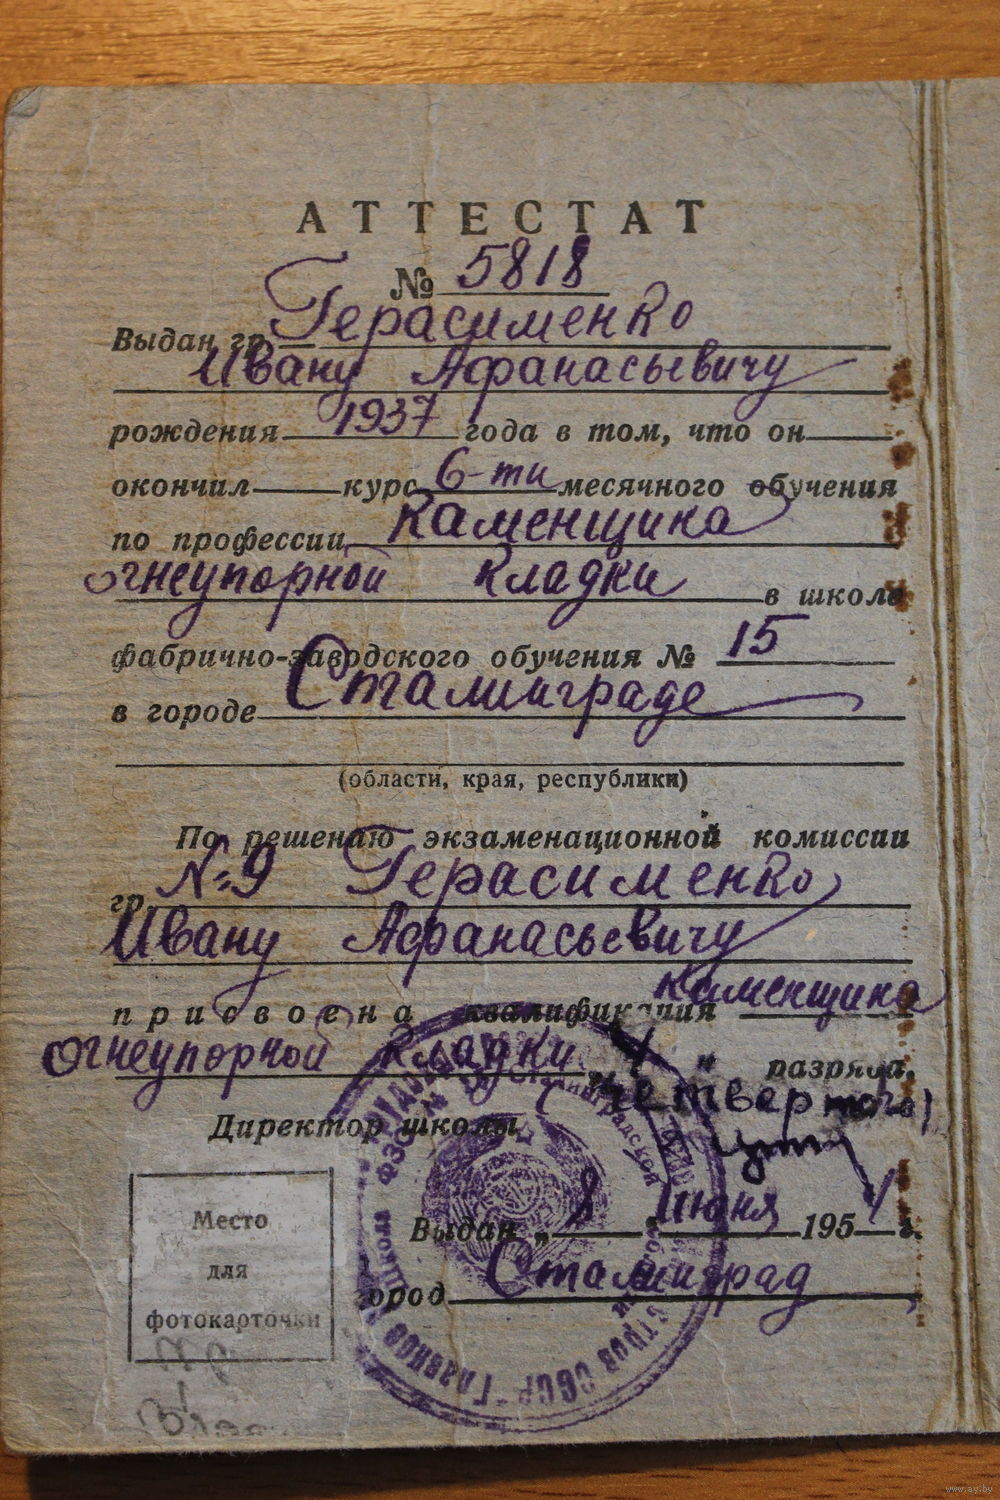 АТТЕСТАТ
№ 5818
Выдан гр. Герасименко
Ивану Афанасьевичу
рождения 1937 года в том, что он
окончил курс 6-ти месячного обучения
по профессии каменщика
огнеупорной кладки в школе
фабрично-заводского обучения № 15
в городе Сталинграде
(области, края, республики)
По решению экзаменационной комиссии
гр. №9 Герасименко
Ивану Афанасьевичу
присвоена квалификация каменщика
огнеупорной кладки 4 " разряда.
(четвертого)
Директор школы
Выдан „ 8 " Июня 1954 г.
город Сталинград
Место
для
фотокарточки
www.ay.by